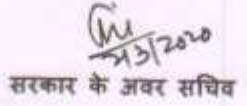 3/2020
सरकार के अवर सचिव